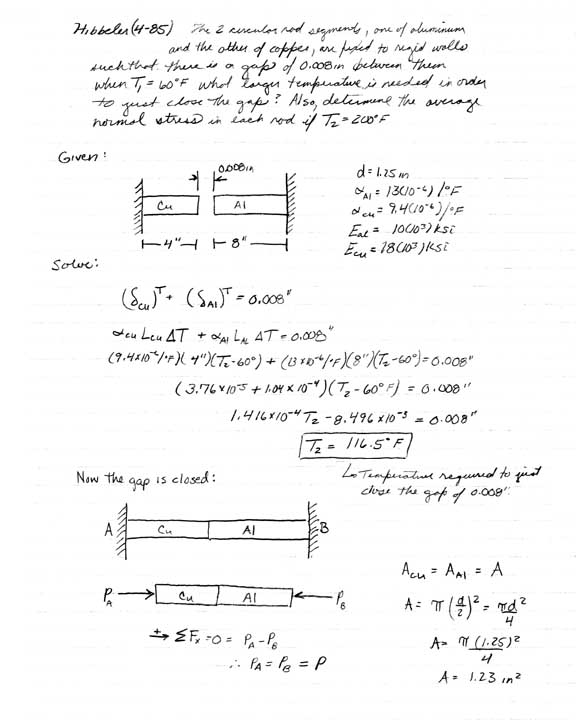 Hibbeler (4-85) The 2 circular rod segments, one of aluminum
and the other of copper, are fixed to rigid walls
such that there is a gap of 0.008in between them
when T₁ = 60°F what larger temperature is needed in order
to just close the gap? Also, determine the average
normal stress in each rod if T₂ = 200°F
Given:
0.008in
Cu Al
4" 8"
d = 1.25 in
α_Al = 13(10⁻⁶)/°F
α_cu = 9.4(10⁻⁶)/°F
E_al = 10(10³) ksi
E_cu = 18(10³) ksi
Solve:
(δ_cu)ᵀ + (δ_Al)ᵀ = 0.008"
α_cu L_cu ΔT + α_Al L_AL ΔT = 0.008"
(9.4x10⁻⁶/°F)(4")(T₂-60°) + (13x10⁻⁶/°F)(8")(T₂-60°) = 0.008"
(3.76x10⁻⁵ + 1.04x10⁻⁴)(T₂-60°F) = 0.008"
1.416x10⁻⁴T₂ - 8.496x10⁻³ = 0.008"
T₂ = 116.5°F
↳ Temperature required to just
close the gap of 0.008".
Now the gap is closed:
A Cu Al B
P_A Cu Al P_B
→+ ΣFₓ = 0 = P_A - P_B
∴ P_A = P_B = P
A_cu = A_Al = A
A = π(d/2)² = πd²/4
A = π(1.25)²/4
A = 1.23 in²